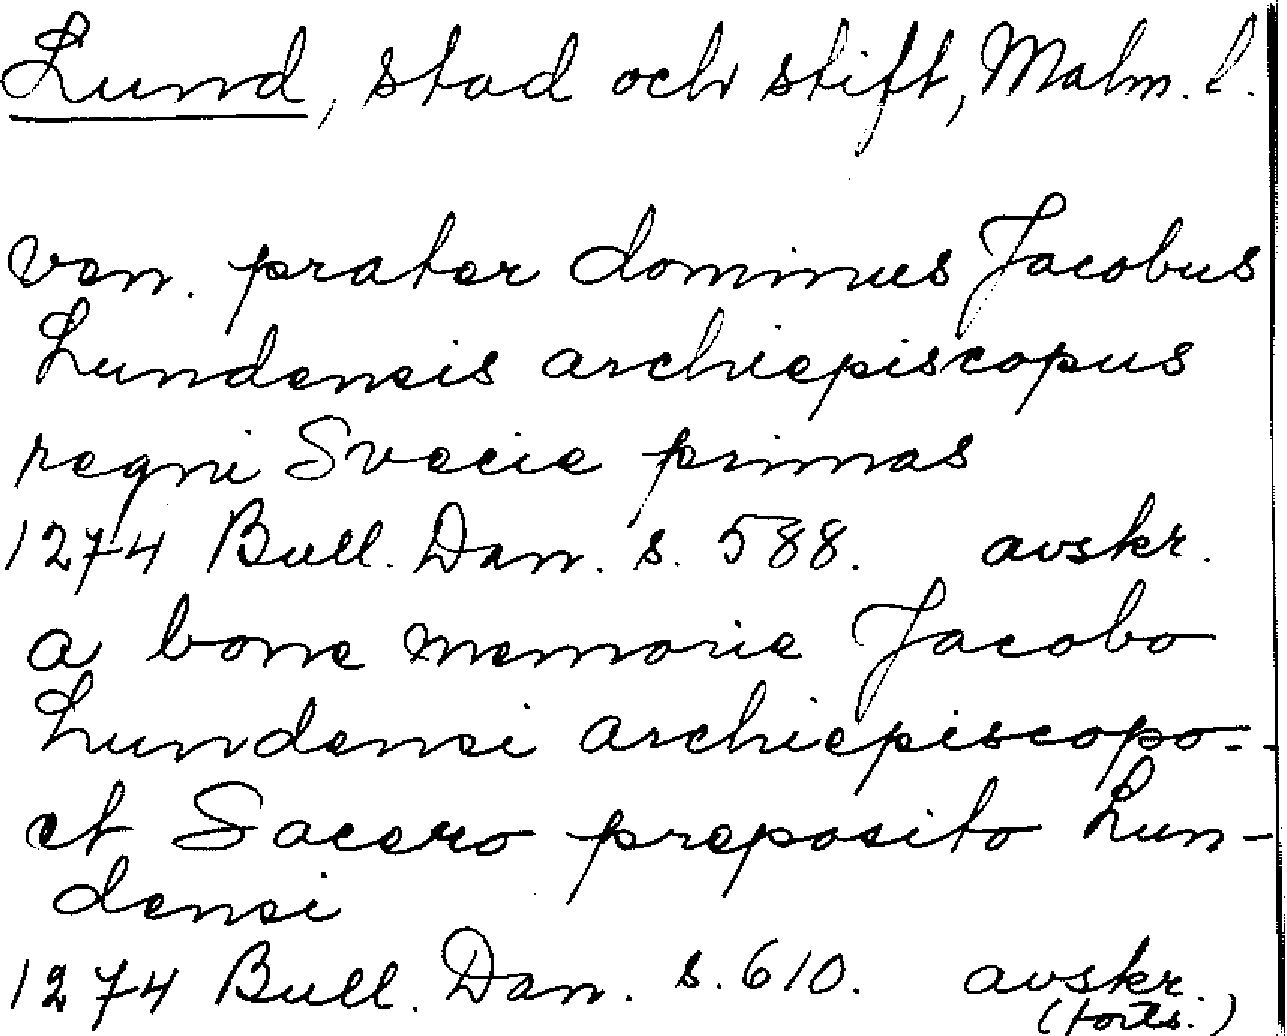 Lund, stad och stift, Malm. l.
ven. prater dominus Jacobus
Lundensis archiepiscopus
regni Svecie primas
1274 Bull. Dan. s. 588. avskr.
a bone memorie Jacobo
Lundensi archiepiscopo--
et Sacero preposito Lun-
densi
1274 Bull. Dan. s. 610. avskr.
(forts.)